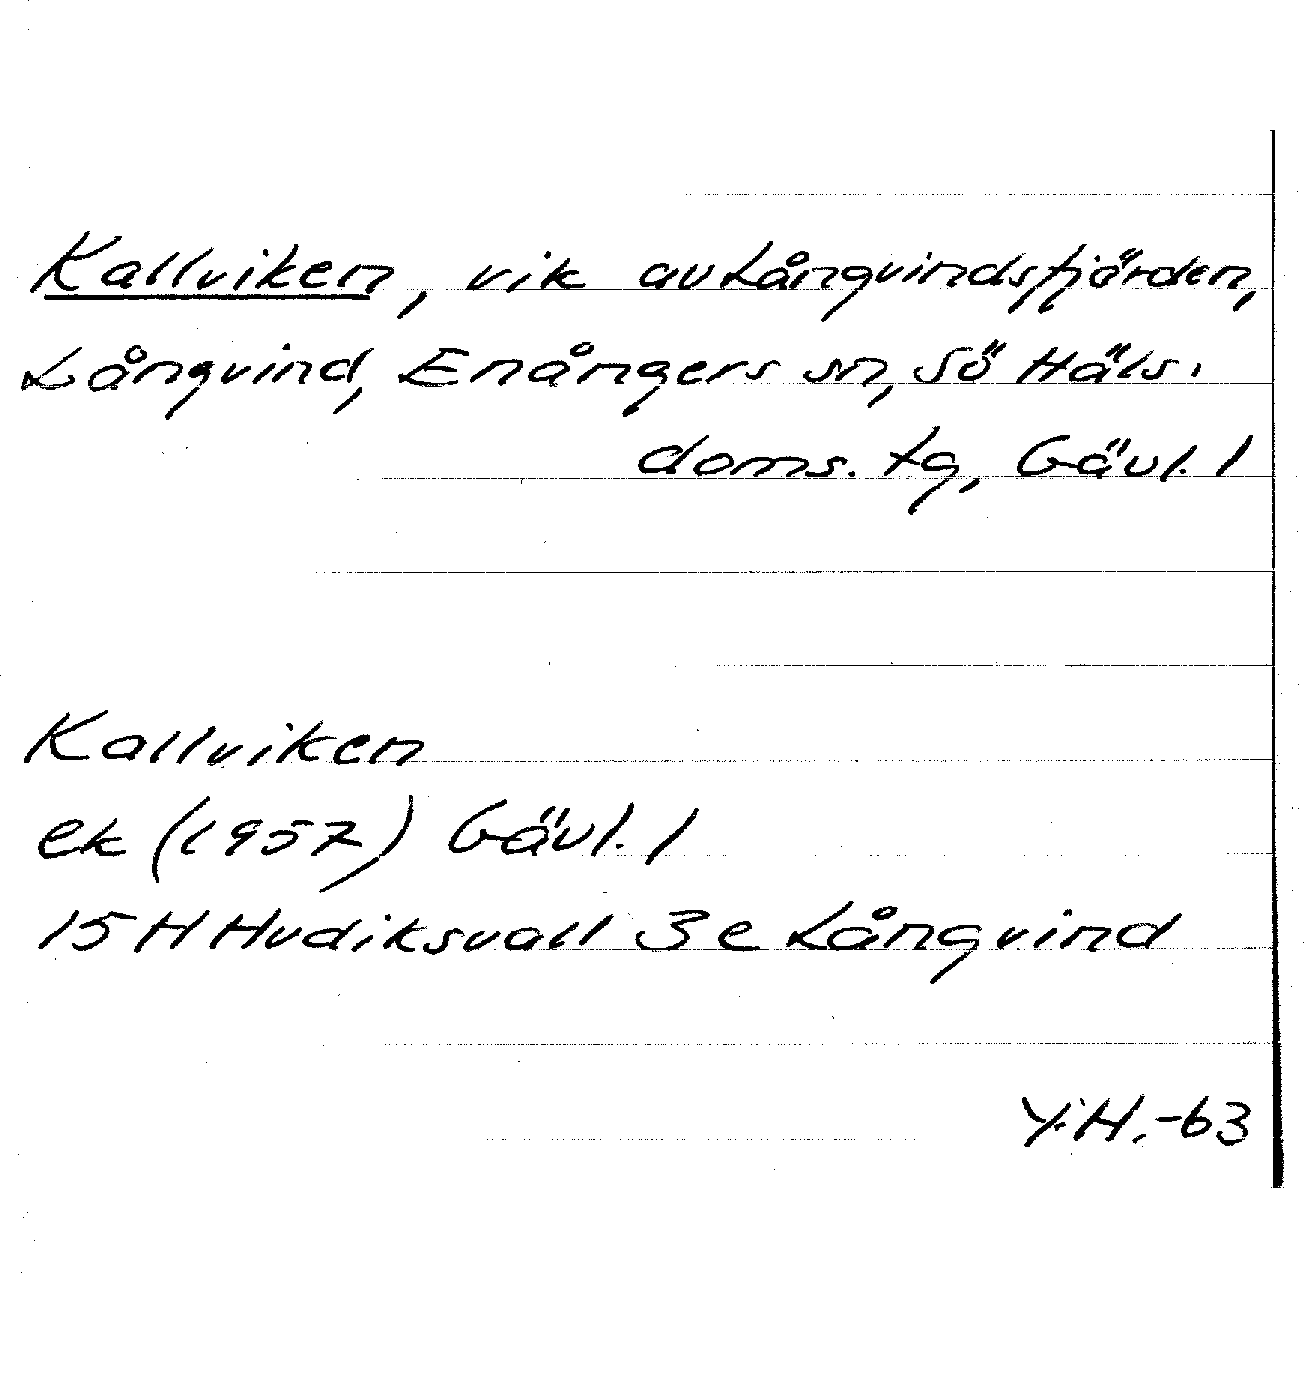 Kallviken, vik av Långvindsfjärden,
Långvind, Enångers sn, Sö Häls.
doms. tg, Gävl. l
Kallviken
ek (1957) Gävl. l
15 H Hudiksvall 3 e Långvind
Y.H.-63